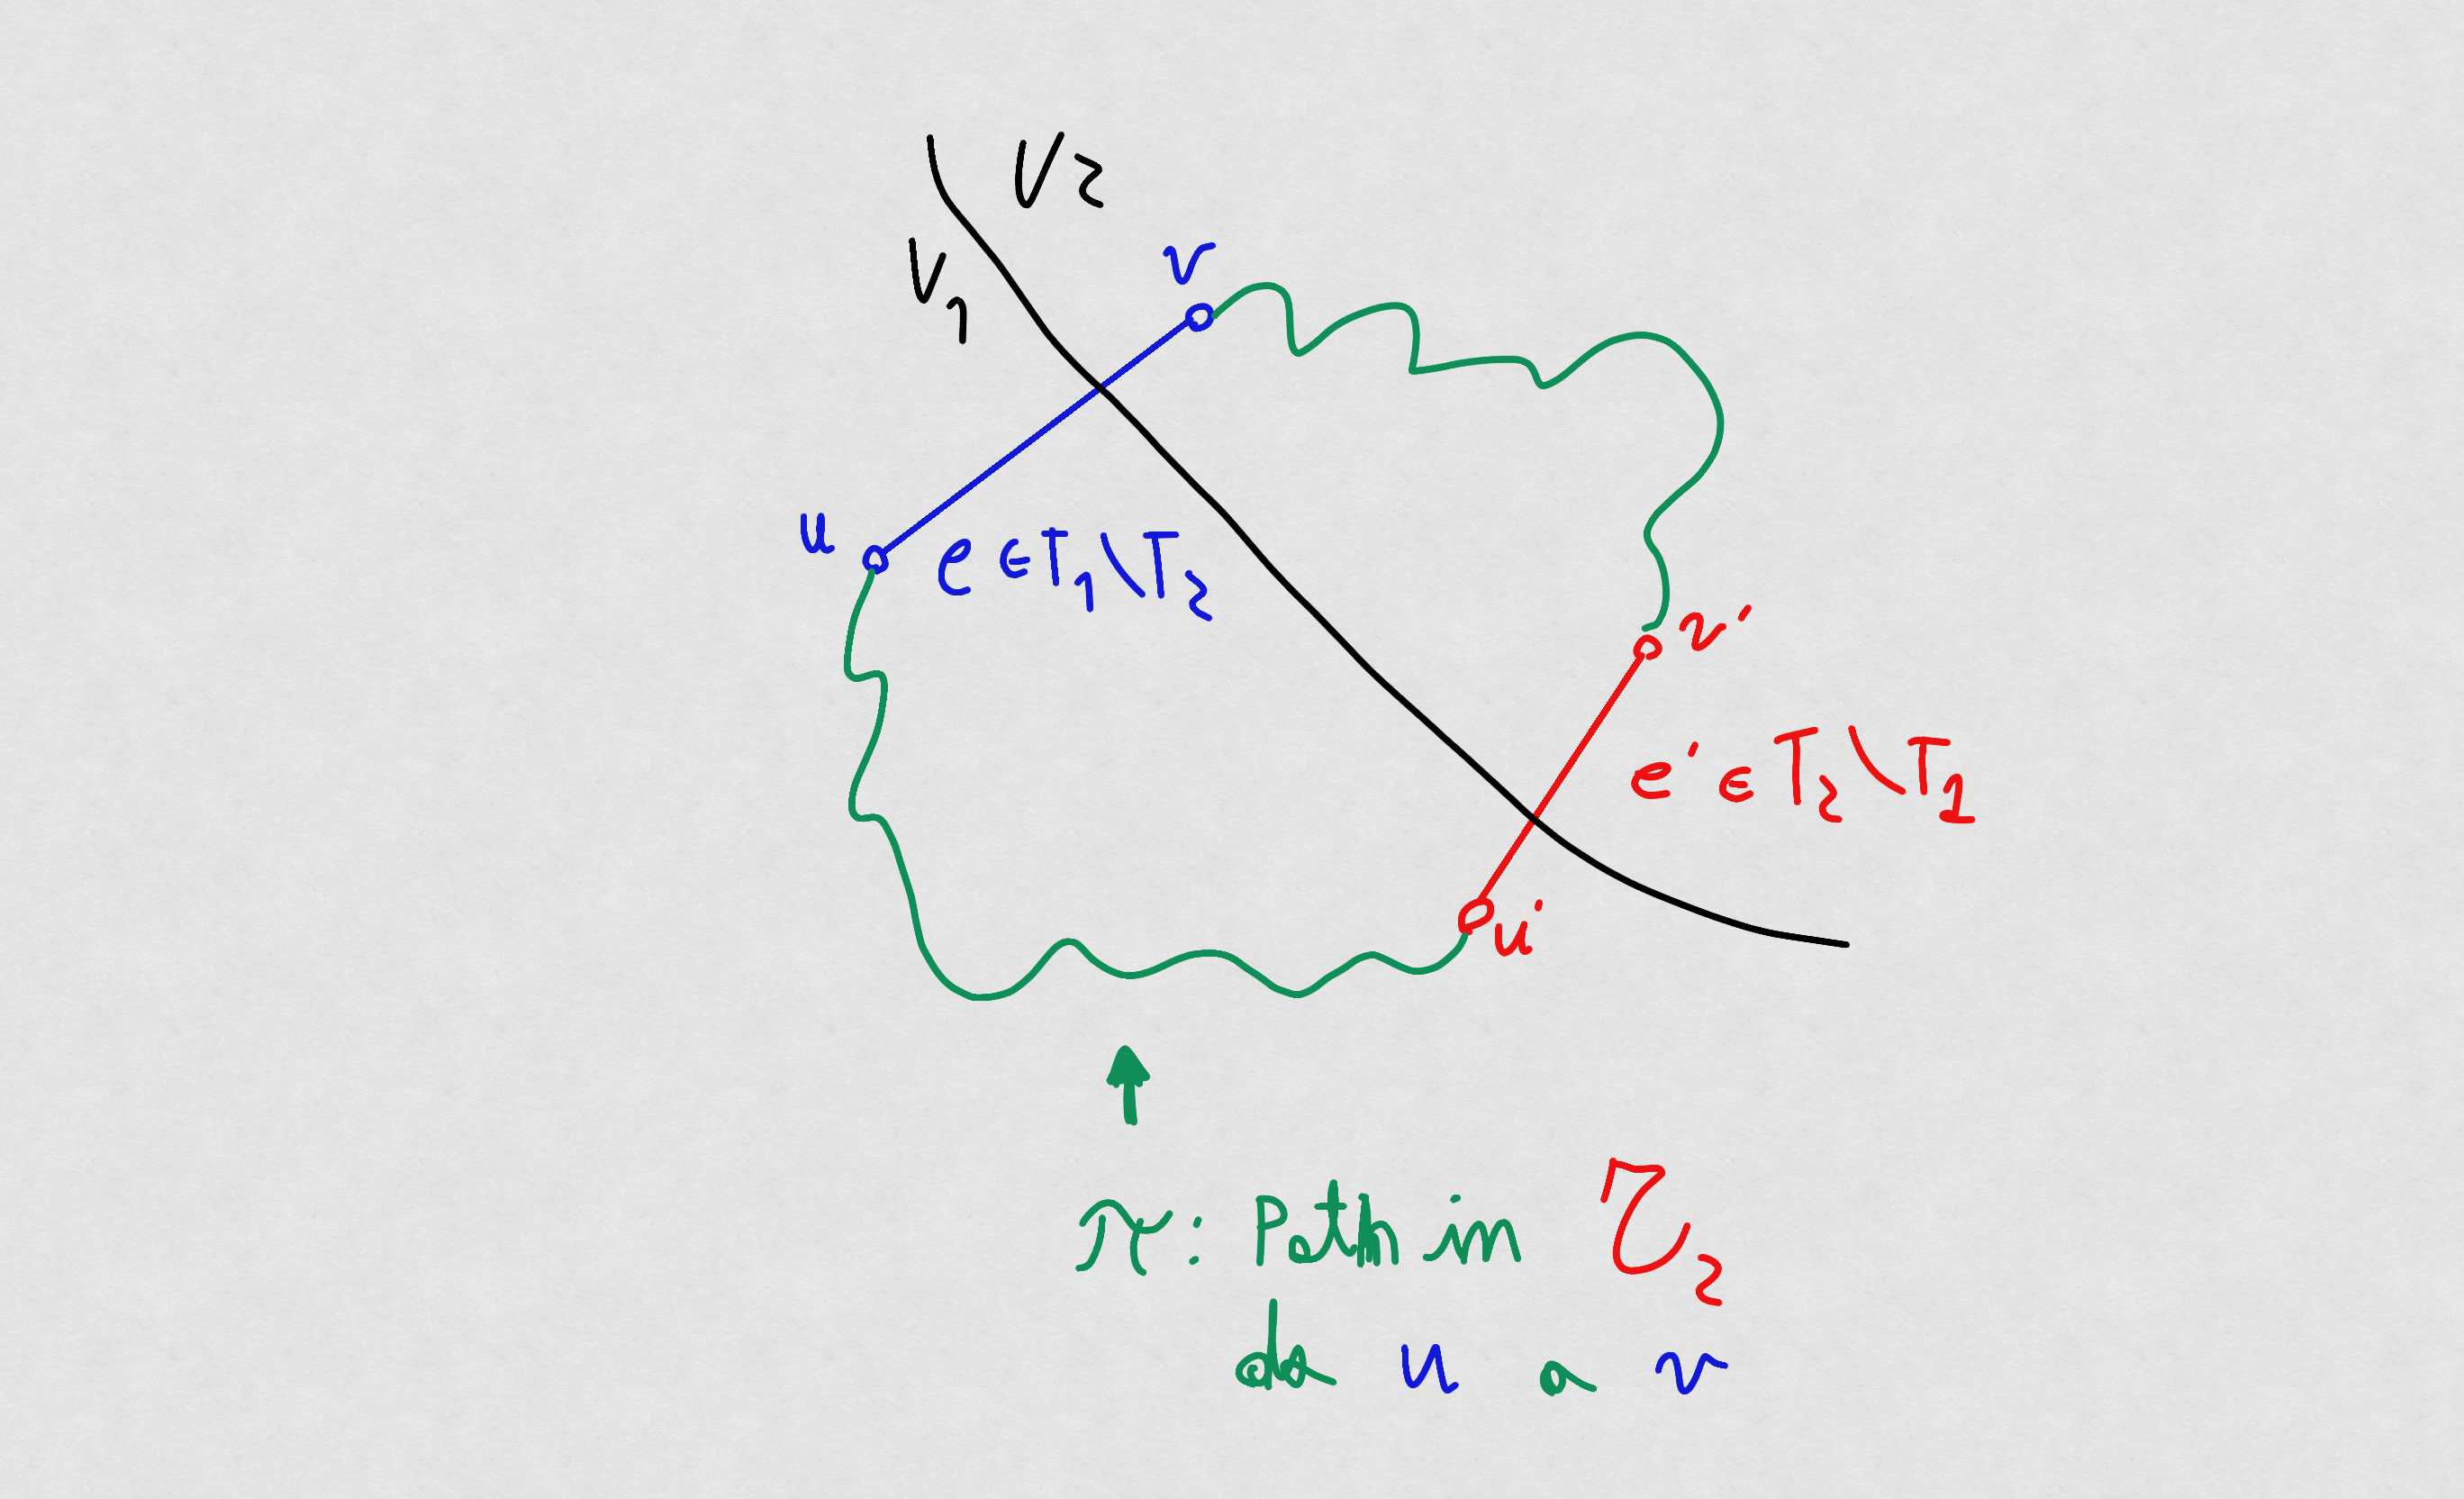 V₂
V₁
v
u
e ∈ T₁\T₂
v'
e' ∈ T₂\T₁
u'
π: Path in τ₂
da u a v